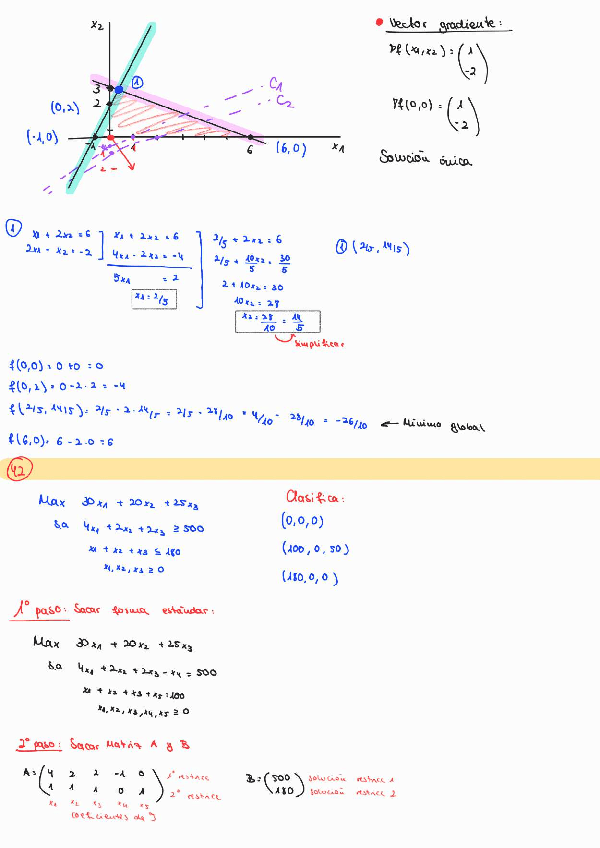 x2
Vector gradiente:
∇f(x1,x2) = (1 -2)
∇f(0,0) = (1 -2)
Solución única
3
2
(0,2)
(-1,0)
-1
1
6
(6,0)
x1
C1
C2
①
2 -
① x1 + 2x2 = 6
2x1 - x2 = -2
x1 + 2x2 = 6
4x1 - 2x2 = -4
5x1 = 2
x1 = 2/5
2/5 + 2x2 = 6
2/5 + 10x2/5 = 30/5
2 + 10x2 = 30
10x2 = 28
x2 = 28/10 = 14/5
simplificar
① (2/5, 14/5)
f(0,0) = 0 + 0 = 0
f(0,2) = 0 - 2·2 = -4
f(2/5, 14/5) = 2/5 - 2·14/5 = 2/5 - 28/10 = 4/10 - 28/10 = -26/10 ← Mínimo global
f(6,0) = 6 - 2·0 = 6
42
Max 30x1 + 20x2 + 25x3
s.a 4x1 + 2x2 + 2x3 ≥ 500
x1 + x2 + x3 ≤ 180
x1, x2, x3 ≥ 0
Clasifica:
(0,0,0)
(100, 0, 50)
(180, 0, 0)
1º paso: Sacar forma estándar:
Max 30x1 + 20x2 + 25x3
s.a 4x1 + 2x2 + 2x3 - x4 = 500
x1 + x2 + x3 + x5 = 180
x1, x2, x3, x4, x5 ≥ 0
2º paso: Sacar Matriz A y B
A = (4 2 2 -1 0) 1º restricc
(1 1 1 0 1) 2º restricc
x1 x2 x3 x4 x5
coeficientes de
B = (500) solución restricc 1
(180) solución restricc 2